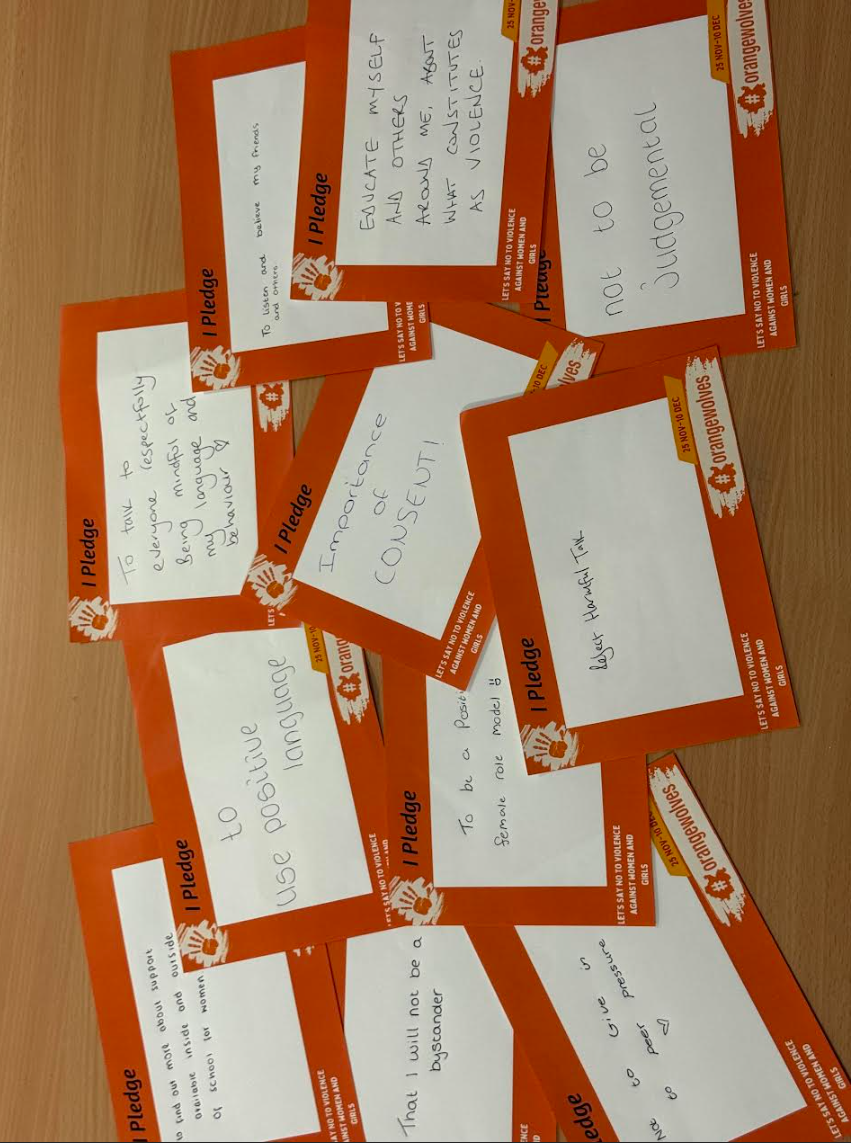 I Pledge
To find out more about support
available inside and outside
of school for women
LET'S SAY NO TO VIOLENCE
AGAINST WOMEN AND
GIRLS
I Pledge
to
use positive
language
LET'S SAY NO TO VIOLENCE
25 NOV-10
#orang
I Pledge
To talk to
everyone respectfully
Being mindful of
my language and
my
behaviour ♡
LET'S
#
I Pledge
To listen and believe my friends
and others
LET'S SAY NO TO V
AGAINST WOME
GIRLS
That I will not be a
bystander
ENCE
ND
I Pledge
To be a Positiv
female role model
LET'S SAY NO TO VIOLENCE
AGAINST WOMEN AND
GIRLS
I Pledge
Importance
of
CONSENT!
LET'S SAY NO TO VIOLENCE
AGAINST WOMEN AND
GIRLS
10 DEC
lves
I Pledge
EDUCATE MYSELF
AND OTHERS
AROUND ME, ABOUT
WHAT CONSTITUTES
AS VIOLENCE.
LET'S SAY NO TO VIOLENCE
AGAINST WOMEN AND
GIRLS
25 NOV-
#orang
edge
Not to Give in
to peer pressure
♡
LET'S SAY NO TO VIOLENCE
AGAINST WOMEN AND
GIRLS
25 NOV-10 DEC
#orangewolves
I Pledge
Reject Harmful Talk
LET'S SAY NO TO VIOLENCE
AGAINST WOMEN AND
GIRLS
25 NOV-10 DEC
#orangewolves
I Pledge
not to be
judgemental
LET'S SAY NO TO VIOLENCE
AGAINST WOMEN AND
GIRLS
25 NOV-10 DEC
#orangewolves